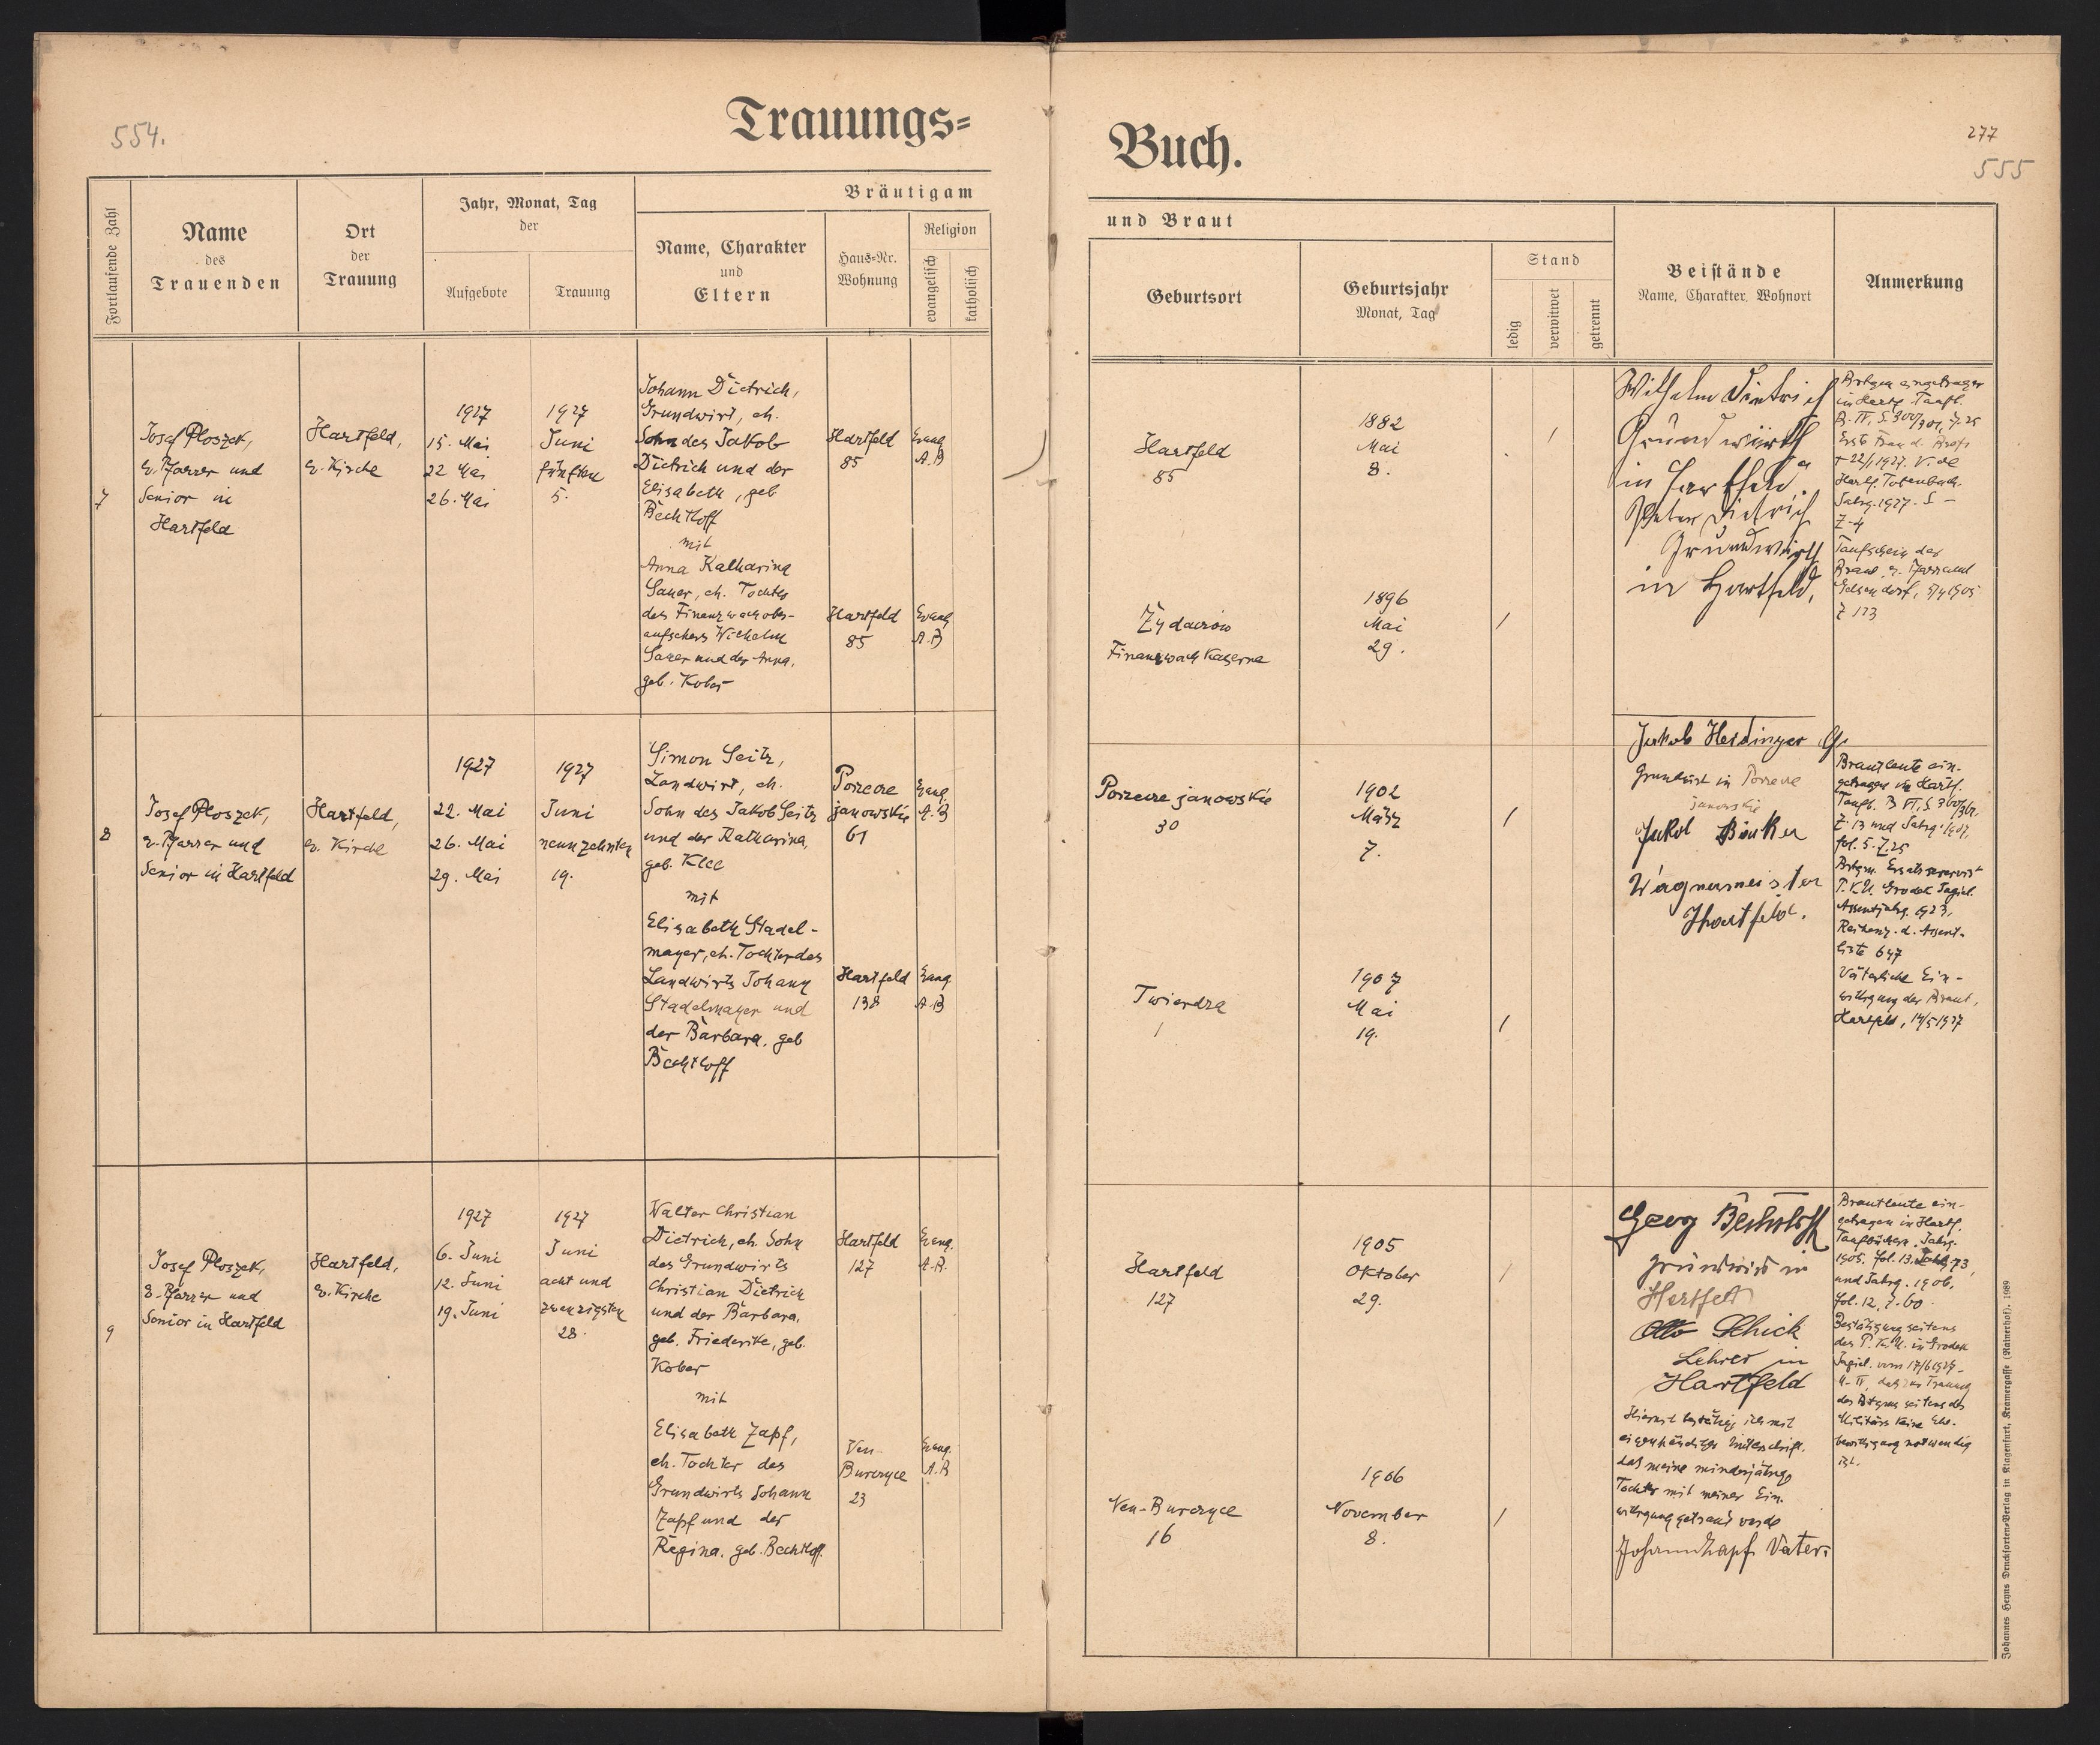 554.
Trauungs=
Fortlaufende Zahl
Name
des
Trauenden
Ort
der
Trauung
Jahr, Monat, Tag
der
Aufgebote
Trauung
Bräutigam
Name, Charakter
und
Eltern
Haus=Nr.
Wohnung
Religion
evangelisch
katholisch
7
Josef Ploszek,
ev. Pfarrer und
Senior in
Hartfeld
Hartfeld,
ev. Kirche
1927
15. Mai
22 Mai
26. Mai
1927
Juni
fünften
5.
Johann Dietrich,
Grundwirt, eh.
Sohn des Jakob
Dietrich und der
Elisabeth, geb
Bechtloff
mit
Anna Katharina
Sauer, eh. Tochter
des Finanzwachober-
aufsehers Wilhelm
Sauer und der Anna,
geb. Kober
Hartfeld
85
Evang
A.B
Hartfeld
85
Evang
A.B
8
Josef Ploszek,
ev. Pfarrer und
Senior in Hartfeld
Hartfeld,
ev. Kirche
1927
22. Mai
26. Mai
29. Mai
1927
Juni
neunzehnten
19.
Simon Seitz,
Landwirt, eh.
Sohn des Jakob Seitz
und der Katharina,
geb. Klee
mit
Elisabeth Stadel-
mayer, eh. Tochter des
Landwirts Johann
Stadelmayer und
der Barbara, geb
Bechtloff
Porzecze
janowskie
61
Evang.
A.B
Hartfeld
138
Evang
A.B
9
Josef Ploszek,
ev. Pfarrer und
Senior in Hartfeld
Hartfeld,
ev. Kirche
1927
6. Juni
12. Juni
19. Juni
1927
Juni
acht und
zwanzigsten
28.
Walter Christian
Dietrich, eh. Sohn
des Grundwirts
Christian Dietrich
und der Barbara,
geb. Friederike, geb.
Kober
mit
Elisabeth Zapf,
eh. Tochter des
Grundwirts Johann
Zapf und der
Regina, geb. Bechtloff.
Hartfeld
127
Evang.
A.B.
Neu-
Burczyce
23
Evang.
A.B
277
555
Buch.
und Braut
Geburtsort
Geburtsjahr
Monat, Tag
Stand
ledig
verwitwet
getrennt
Beistände
Name, Charakter, Wohnort
Anmerkung
Hartfeld
85
1882
Mai
8.
Zydaczow
Finanzwach Kaserne
1896
Mai
29.
Wilhelm Dietrich
Grundwirth
in Hartfeld.
Peter Dietrich
Grundwirth
in Hartfeld,
Brtgm eingetragen
in Hartf. Taufb.
B. IV, S. 300/301, Z. 25
Erste Frau d. Brtgs
+ 22/1 1927. Vide
Hartf. Totenbuch.
Jahrg. 1927. S -
Z-4
Taufschein der
Braut, ev. Pfarramt
Gelsendorf,
Z 123
Porzecze janowskie
30
1902
März
7.
Twierdza
1
1907
Mai
19.
Jakob Heidinger
Grundwirt in Porzecze
janowskie
Jakob Binker
Wagnermeister
Hartfeld.
Brautleute ein-
getragen in Hartf.
Taufb. B VI, S 360/361,
Z. 13 und Jahrg. 1907,
fol. 5. Z. 25
Brtgm. Ersatzreservist
P.K.U. Grodek Jagiel.
Assentjahrg. 1923,
Reihenz. d. Assent-
liste 647
Väterliche Ein-
willigung der Braut,
Hartfeld, 14/5 1927
Hartfeld
127
1905
Oktober
29.
Neu-Burczyce
16
1906
November
8.
Georg Bechtloff
Grundwirt in
Hartfeld
Otto Schick
Lehrer in
Hartfeld
Hiermit bestätige ich mit
eigenhändiger Unterschrift,
das meine minderjährige
Tochter mit meiner Ein-
willigung getraut werde
Johann Zapf Vater.
Brautleute ein-
getragen in Hartf.
Taufbücher, Jahrg.
1905. fol. 13. Z. 73,
und Jahrg. 1906,
fol. 12, Z. 60.
Bestätigung seitens
des P.K.U. in Grodek
Jagiel. vom 17/6 1927 -
dass zur Trauung
des Brtgms seitens des
Militärs keine Ehe-
bewilligung notwendig
ist.
Johannes Heyns Drucksorten=Verlag in Klagenfurt, Kramergasse (Rainerhof). 1989